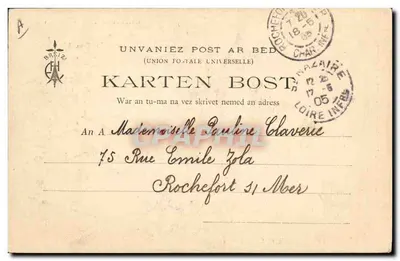 UNVANIEZ POST AR BED
(UNION POSTALE UNIVERSELLE)
KARTEN BOST
War an tu-ma na vez skrivet nemed an adress
An A Mademoiselle Pauline Claverie
75 Rue Emile Zola
Rochefort s/ Mer
ROCHEFORT
18 - 5
05
CHAR INFRE
ST NAZAIRE
17 - 5
05
LOIRE INFRE